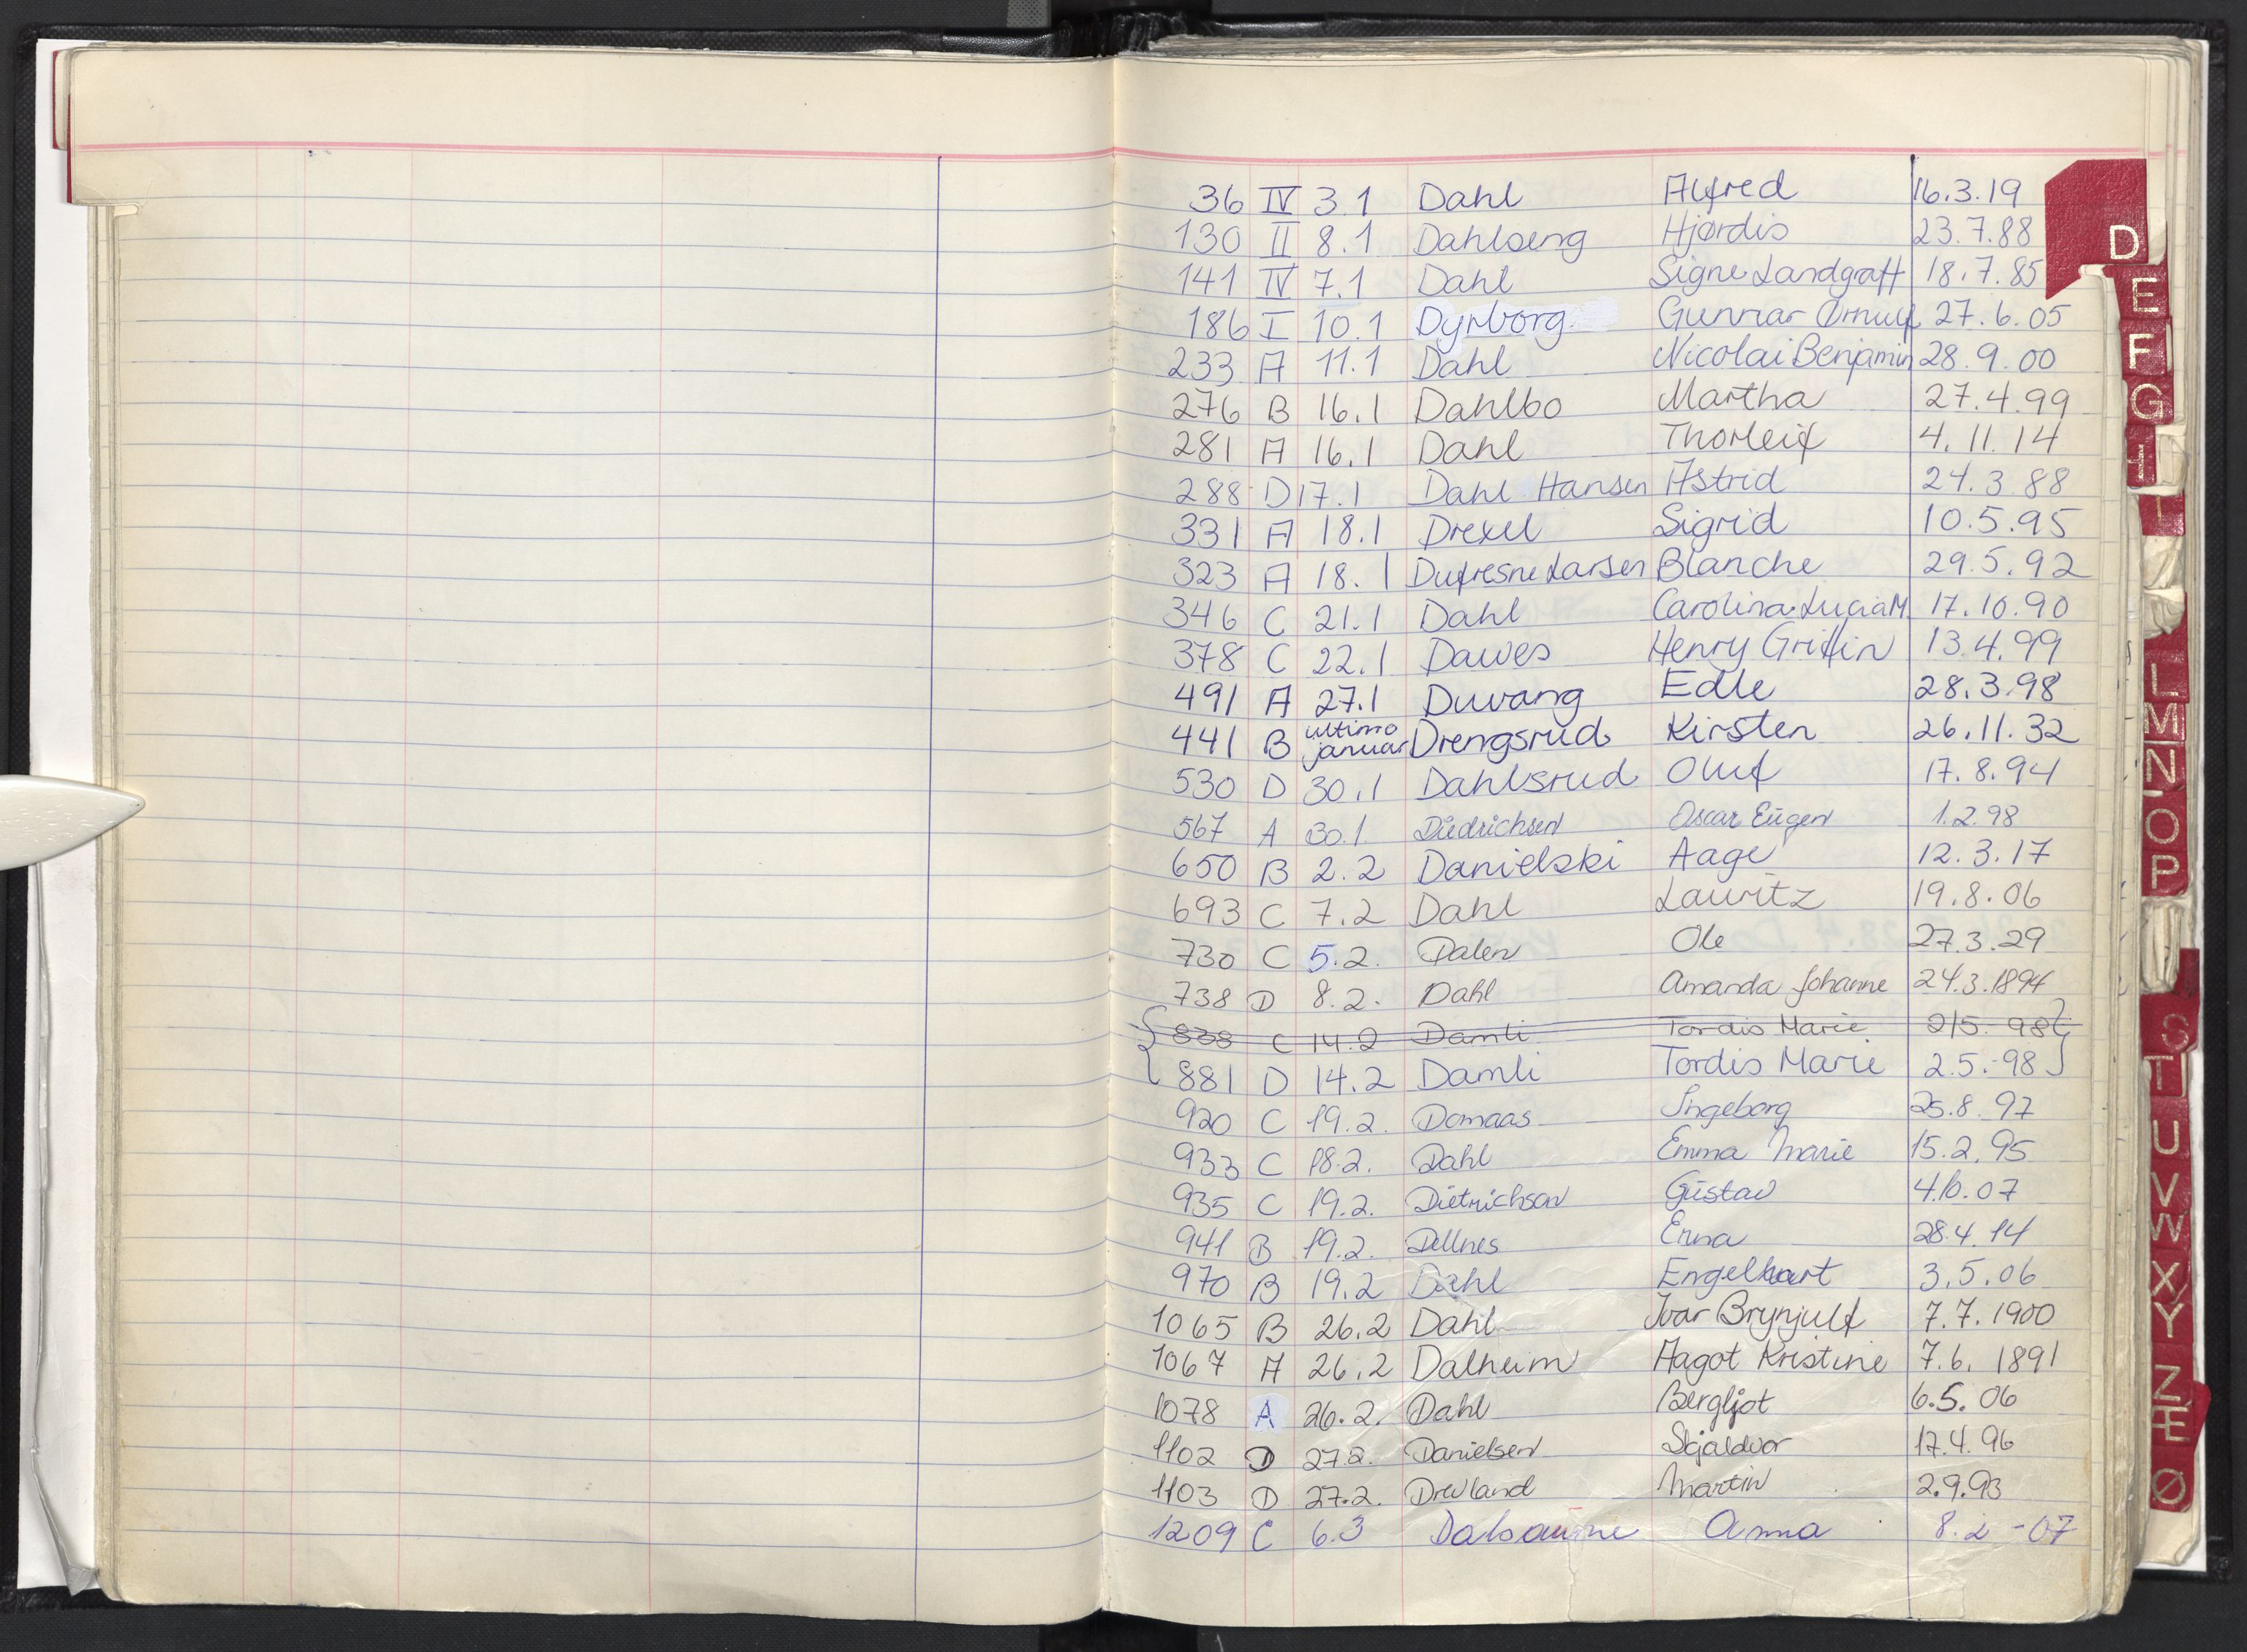 36 IV 3.1 Dahl Alfred 16.3.19
130 II 8.1 Dahlseng Hjørdis 23.7.88
141 IV 7.1 Dahl Signe Landgraff 18.7.85
186 I 10.1 Dyrborg Gunnar Ørnulf 27.6.05
233 A 11.1 Dahl Nicolai Benjamin 28.9.00
276 B 16.1 Dahlbo Martha 27.4.99
281 A 16.1 Dahl Thorleif 4.11.14
288 D 17.1 Dahl Hansen Astrid 24.3.88
331 A 18.1 Drexel Sigrid 10.5.95
323 A 18.1 Dufresne Larsen Blanche 29.5.92
346 C 21.1 Dahl Carolina Lucia M. 17.10.90
378 C 22.1 Dawes Henry Griffin 13.4.99
491 A 27.1 Duvang Edle 28.3.98
441 B ultimo januar Drengsrud Kirsten 26.11.32
530 D 30.1 Dahlsrud Oluf 17.8.94
567 A 30.1. Diedrichsen Oscar Eugen 1.2.98
650 B 2.2 Danielski Aage 12.3.17
693 C 7.2 Dahl Lauritz 19.8.06
730 C 5.2. Dalen Ole 27.3.29
738 D 8.2. Dahl Amanda Johanne 24.3.1894
838 C 14.2 Damli Tordis Marie 2/5-98
881 D 14.2 Damli Tordis Marie 2.5.-98
920 C 19.2. Domaas Ingeborg 25.8.97
933 C 18.2. Dahl Emma Marie 15.2.95
935 C 19.2. Dietrichson Gustav 4.10.07
941 B 19.2. Dellnes Erna 28.4.14
970 B 19.2 Dahl Engelhart 3.5.06
1065 B 26.2 Dahl Ivar Brynjulf 7.7.1900
1067 A 26.2 Dalheim Aagot Kristine 7.6.1891
1078 A 26.2. Dahl Bergljot 6.5.06
1102 D 27.2. Danielsen Skjaldvor 17.4.96
1103 D 27.2. Drevland Martin 2.9.93
1209 C 6.3 Anna 8.2-07
D
E
F
G
H
I
L
M
N
O
P
S
T
U
V
W
X
Y
Z
Æ
Ø